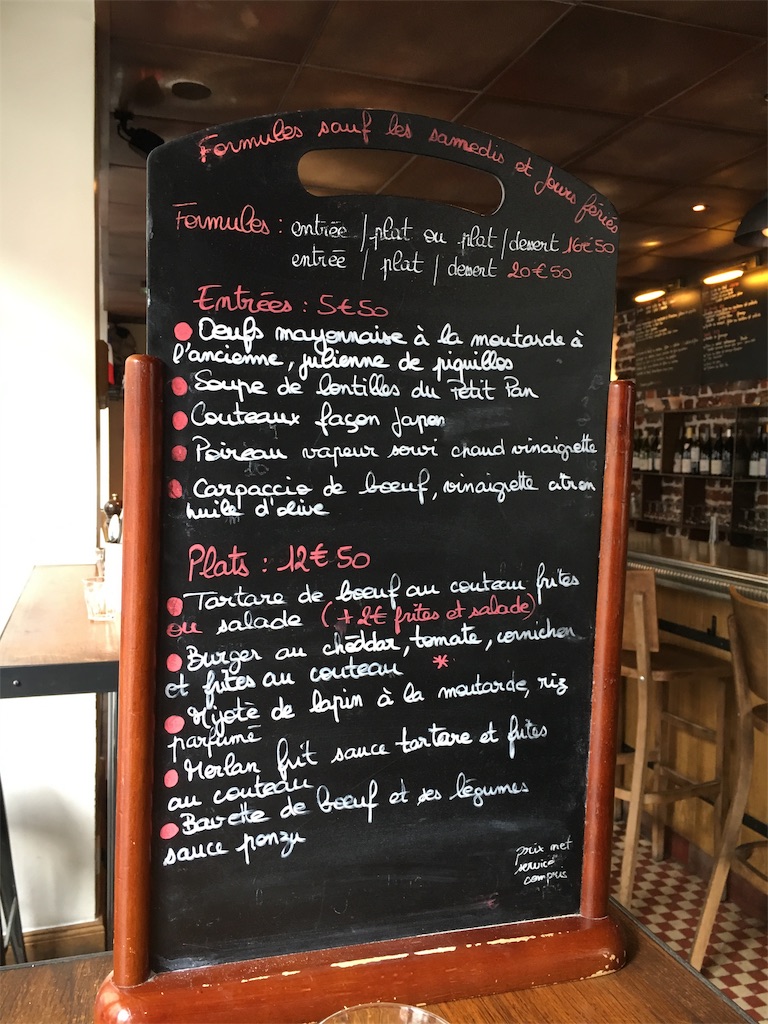 Formules sauf les samedis et jours feriés
Formules : entrée / plat ou plat / dessert 16€50
entrée / plat / dessert 20€50
Entrées : 5€50
Oeufs mayonnaise à la moutarde à
l'ancienne, julienne de piquillos
Soupe de lentilles du Petit Pan
Couteaux façon Japon
Poireau vapeur servi chaud vinaigrette
Carpaccio de boeuf, vinaigrette citron
huile d'olive
Plats : 12€50
Tartare de boeuf au couteau frites
ou salade (+2€ frites et salade)
Burger au cheddar, tomate, cornichon
et frites au couteau *
Mijoté de lapin à la moutarde, riz
parfumé
Merlan frit sauce tartare et frites
au couteau
Bavette de boeuf et ses légumes
sauce ponzu
prix net
service
compris